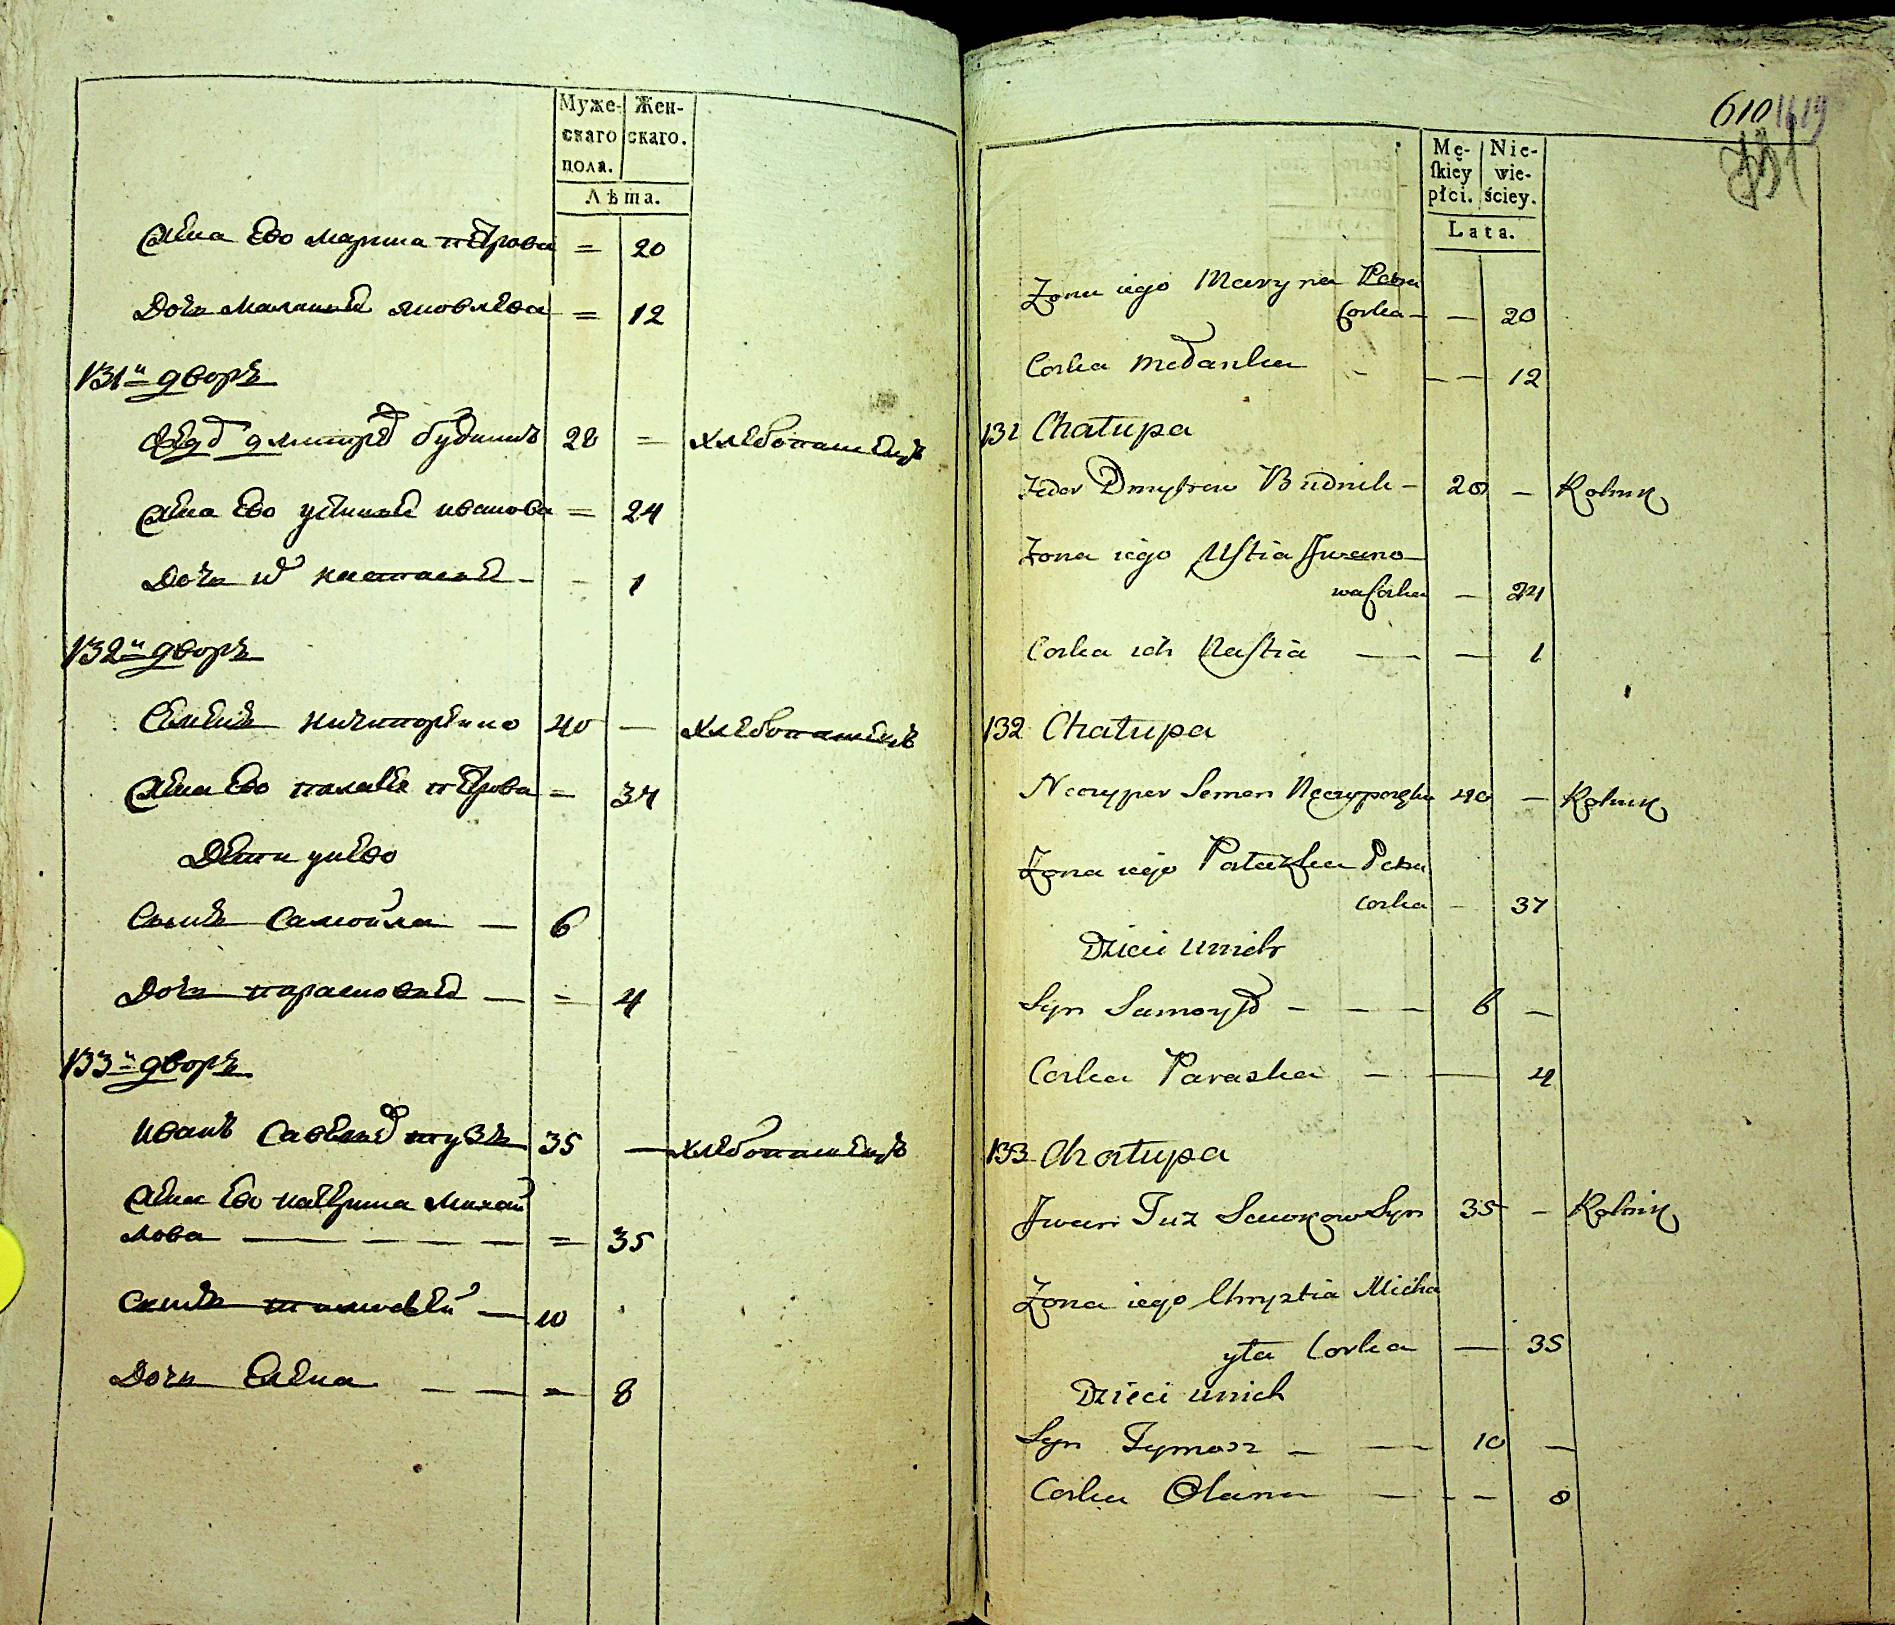 Муже-
скаго
пола.
Жен-
скаго.
Лѣта.
Жена Ево марина петрова = 20
Дочь маланья яковлева = 12
131й дворъ
Федор дмитрев будникъ 28 = хлебопашецъ
Жена Ево устинья иванова = 24
Дочь их настасья - - 1
132й дворъ
Семенъ ничипоренко 40 — хлебопашецъ
Жена Ево палагея петрова = 34
Дети унево
Сынъ Самойла — 6
Дочь парасковья — = 4
133й дворъ
иванъ Савельев тузъ 35 — хлебопашецъ
Жена Ево катерина михай
лова — — — — — = 35
Сынъ тимофей — 10
Дочь Елена — — = 8
610
Mę-
ſkiey
płci.
Nie-
wie-
ściey.
Lata.
Zona iego Maryna Petra
Corka - — 20
Corka Mełanka - — — 12
131 Chałupa
Fedor Dmytrew Budnik - 28 — Rolnik
Zona iego Uſtia Jwano
wa Corka — 24
Corka ich Naſtia — — — 1
132 Chałupa
Semen 40 — Rolnik
Zona iego Pałażka Petra
corka - 34
Dzieci unich
Syn Samoyło - - - 6 —
Corka Paraska — — 4
133 Chałupa
Jwan Tuz Sawow Syn 35 — Rolnik
Zona iego Chryztia Micha
yła Corka — 35
Dzieci unich
Syn Tymosz — — — 10 —
Corka Olana — - — 8